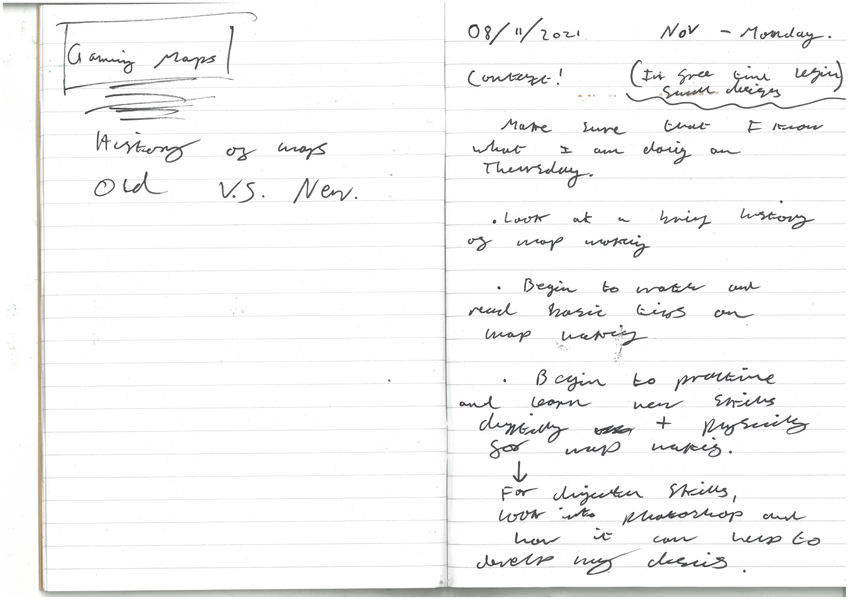 Gaming Maps
History of maps
Old V.S. New.
08/11/2021 Nov - Monday.
Context! (In free time begin
small designs)
Make sure that I know
what I am doing on
Thursday.
. Look at a brief history
of map making
. Begin to watch and
read basic tips on
map making
. Begin to practine
and learn new skills
digitally + physically
for map making.
↓
For digital skills,
look into photoshop and
how it can help to
develop my designs.